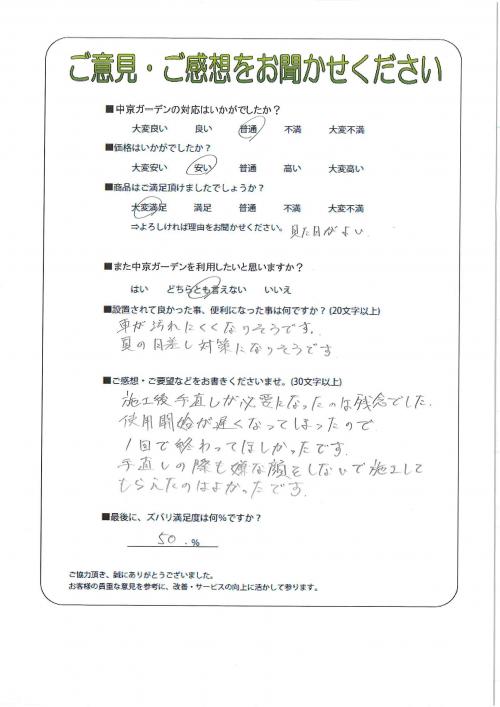 ご意見・ご感想をお聞かせください
■中京ガーデンの対応はいかがでしたか？
大変良い 良い 普通 不満 大変不満
■価格はいかがでしたか？
大変安い 安い 普通 高い 大変高い
■商品はご満足頂けましたでしょうか？
大変満足 満足 普通 不満 大変不満
⇒よろしければ理由をお聞かせください。 見た目がよい。
■また中京ガーデンを利用したいと思いますか？
はい どちらとも言えない いいえ
■設置されて良かった事、便利になった事は何ですか？(20文字以上)
車が汚れにくくなりそうです。
夏の日差し対策になりそうです
■ご感想・ご要望などをお書きくださいませ。(30文字以上)
施工後手直しが必要になったのは残念でした。
使用開始が遅くなってしまったので
1回で終わってほしかったです。
手直しの際も嫌な顔をしないで施工して
もらえたのはよかったです。
■最後に、ズバリ満足度は何％ですか？
50.％
ご協力頂き、誠にありがとうございました。
お客様の貴重な意見を参考に、改善・サービスの向上に活かして参ります。